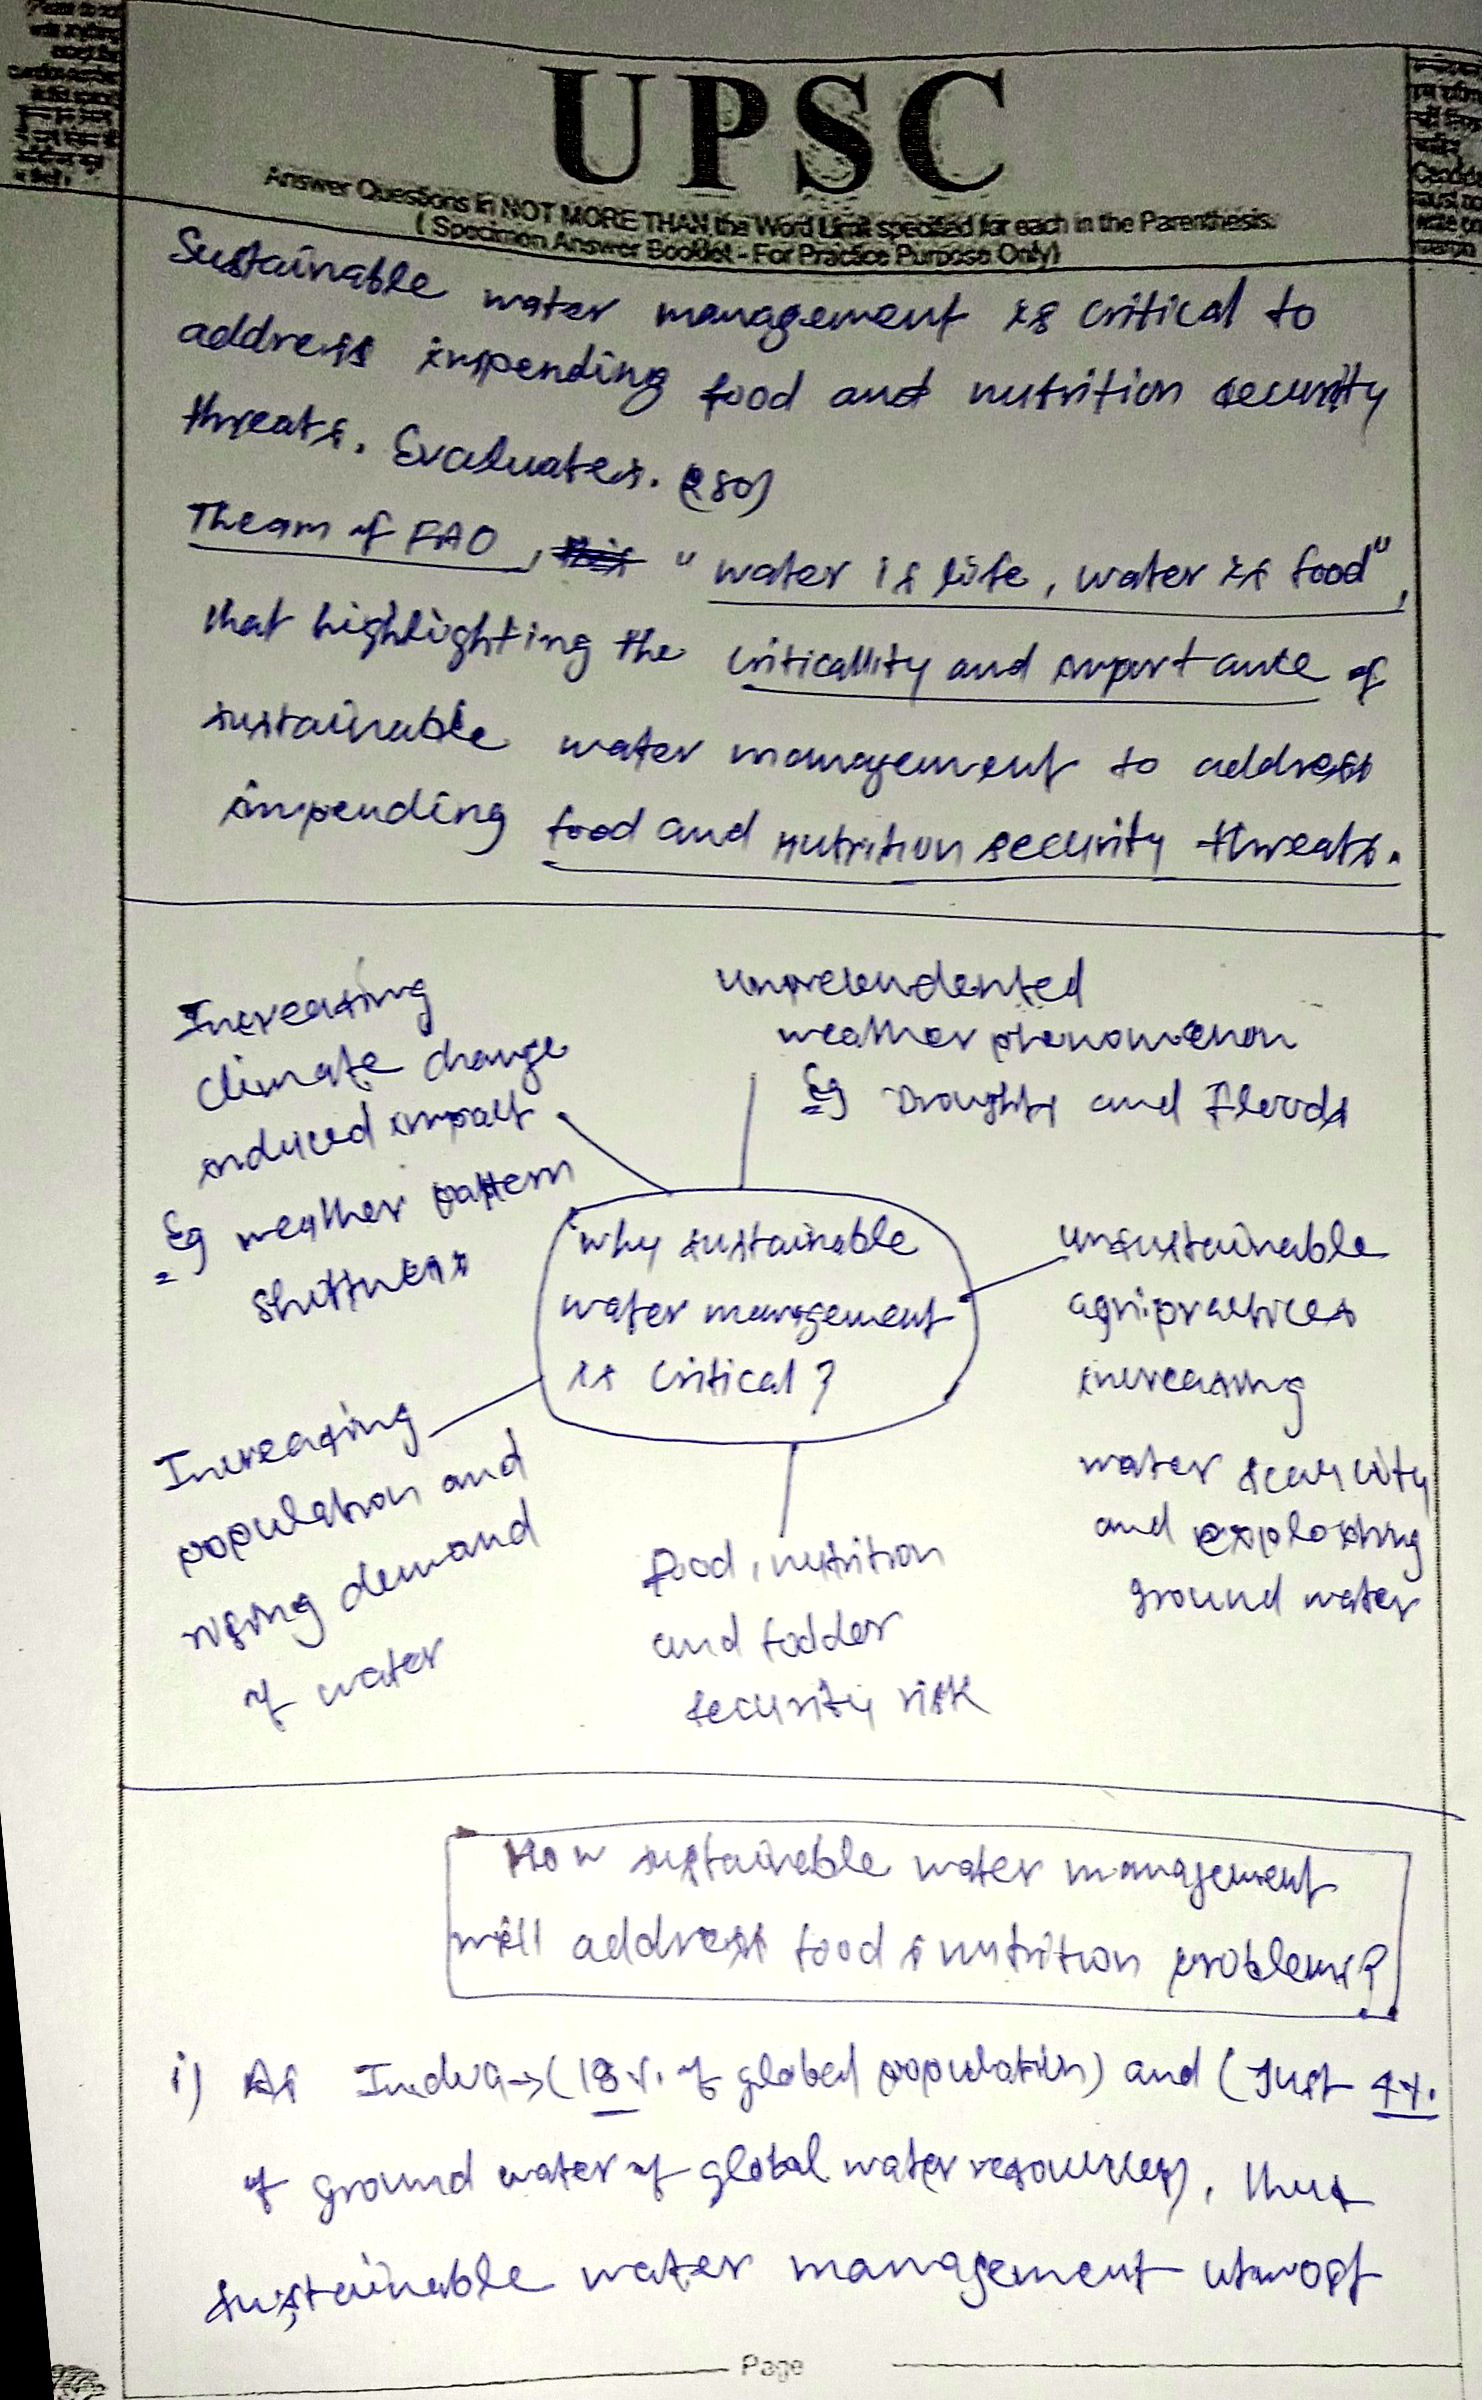 UPSC
Answer Questions in NOT MORE THAN the Word Limit specified for each in the Parenthesis.
( Specimen Answer Booklet - For Practice Purpose Only)
Sustainable water management is critical to
address impending food and nutrition security
threats. Evaluates. (250)
Theam of FAO, "water is life, water is food",
that highlighting the criticallity and importance of
sustainable water management to address
impending food and nutrition security threats.
Increasing
climate change
induced impact
Eg weather pattern
weather phenomenon
Eg Droughts and Floods
Why sustainable
water management
is critical?
unsustainable
agripractices
increasing
water scarcity
and exploiting
ground water
Increasing
population and
rising demand
of water
food, nutrition
and fodder
security risk
How sustainable water management
will address food & nutrition problems?
i) As India → (18%. of global population) and (Just 4%.
of ground water of global water resources), thus
sustainable water management utmost
Page